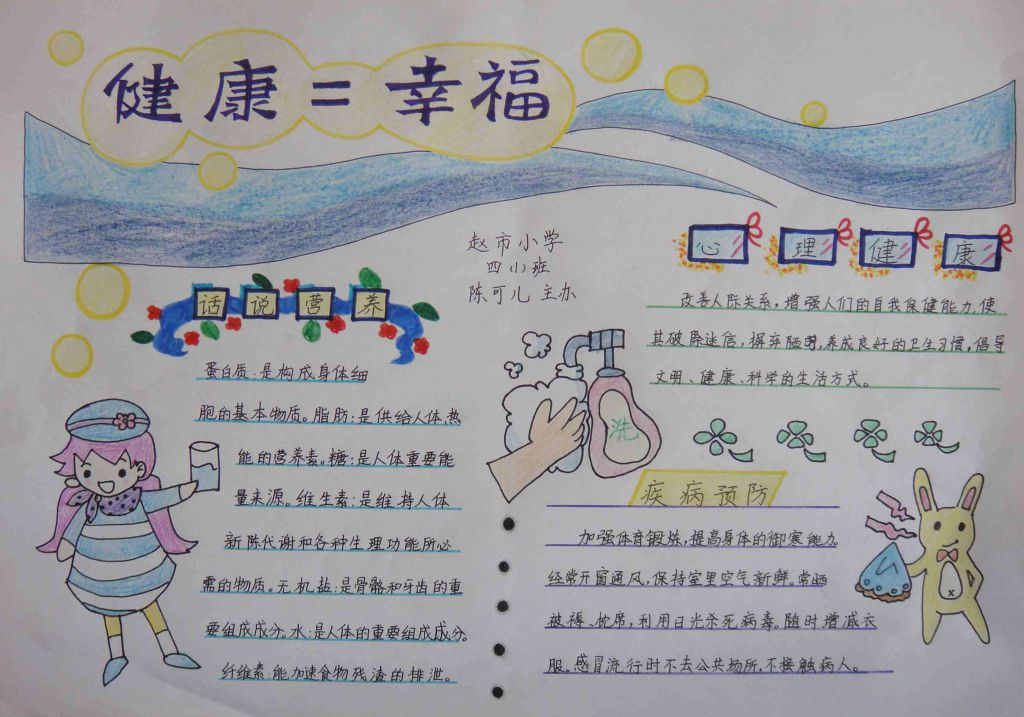 健康=幸福
赵市小学
四(1)班
陈可儿 主办
话说营养
蛋白质:是构成身体细
胞的基本物质。脂肪:是供给人体热
能的营养素。糖:是人体重要能
量来源。维生素:是维持人体
新陈代谢和各种生理功能所必
需的物质。无机盐:是骨骼和牙齿的重
要组成成分。水:是人体的重要组成成分。
纤维素:能加速食物残渣的排泄。
洗
心理健康
改善人际关系,增强人们的自我保健能力,使
其破除迷信,摒弃陋习,养成良好的卫生习惯,倡导
文明、健康、科学的生活方式。
疾病预防
加强体育锻炼,提高身体的御寒能力
经常开窗通风,保持室里空气新鲜。常晒
被褥、枕席,利用日光杀死病毒。随时增减衣
服。感冒流行时不去公共场所,不接触病人。